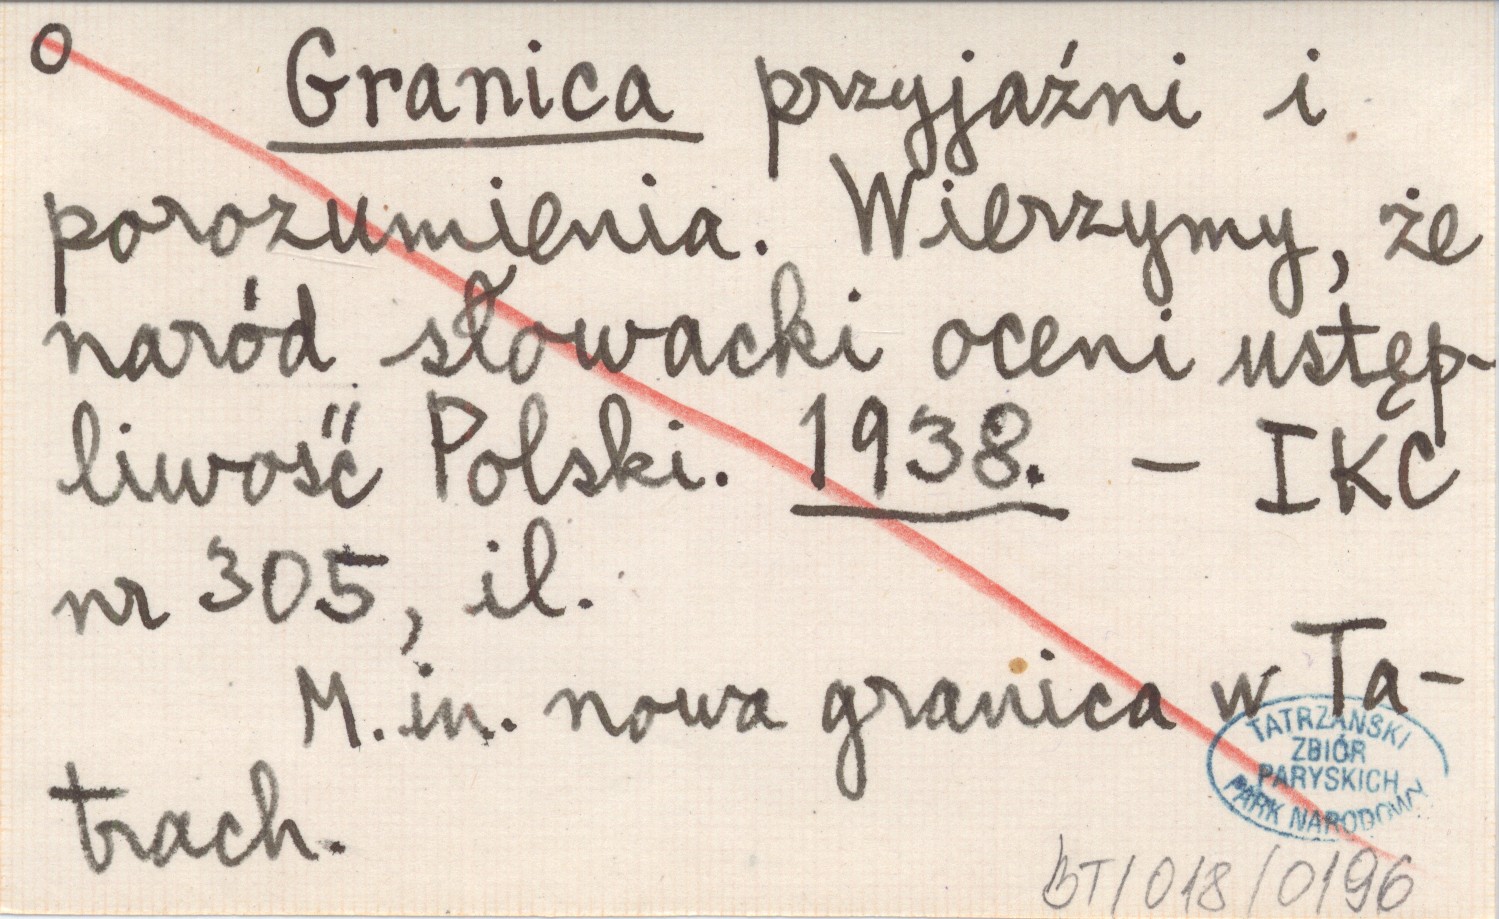 O Granica przyjaźni i
porozumienia. Wierzymy, że
naród słowacki oceni ustęp-
liwość Polski. 1938. – IKC
nr 305, il.
M. in. nowa granica w Ta-
trach.
TATRZAŃSKI
ZBIÓR
PARYSKICH
PARK NARODOWY
BT/018/0196